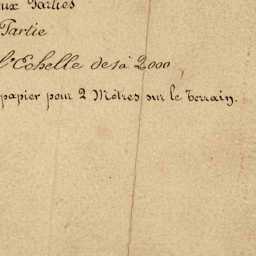 ux Parties
Partie
l'Echelle de 1 à 2000
papier pour 2 Mètres sur le Terrain.